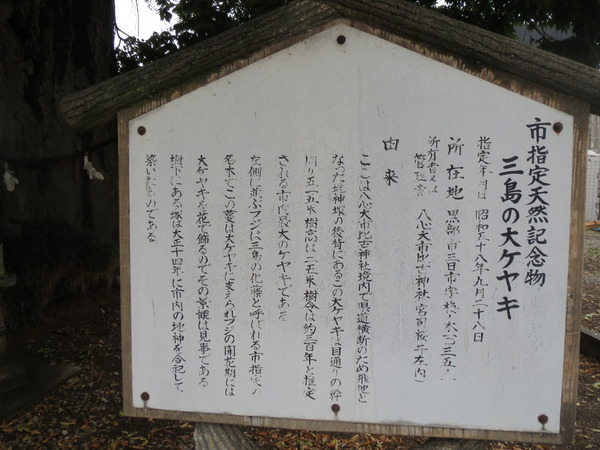 市指定天然記念物
三島の大ケヤキ
指定年月日 昭和五十八年九月二十八日
所在地 黒部市三日市字
所有者又は
管理者 八心大市比古神社(宮司桜井
由来
ここは八心大市比古神社境内で県道横断のため飛地と
なった地神塚の後背にあるこの大ケヤキは目通りの幹
周り五・五米樹高は二五米樹令は約三百年と推定
される市内最大のケヤキである
左側に並ぶフジは三島の化藤と呼ばれる市指定の
名木でこの蔓は大ケヤキに支えられフジの開花期には
大ケヤキを花で飾るのでその景観は見事である
樹下にある塚は大正十四年に市内の地神を合祀して
築いたものである